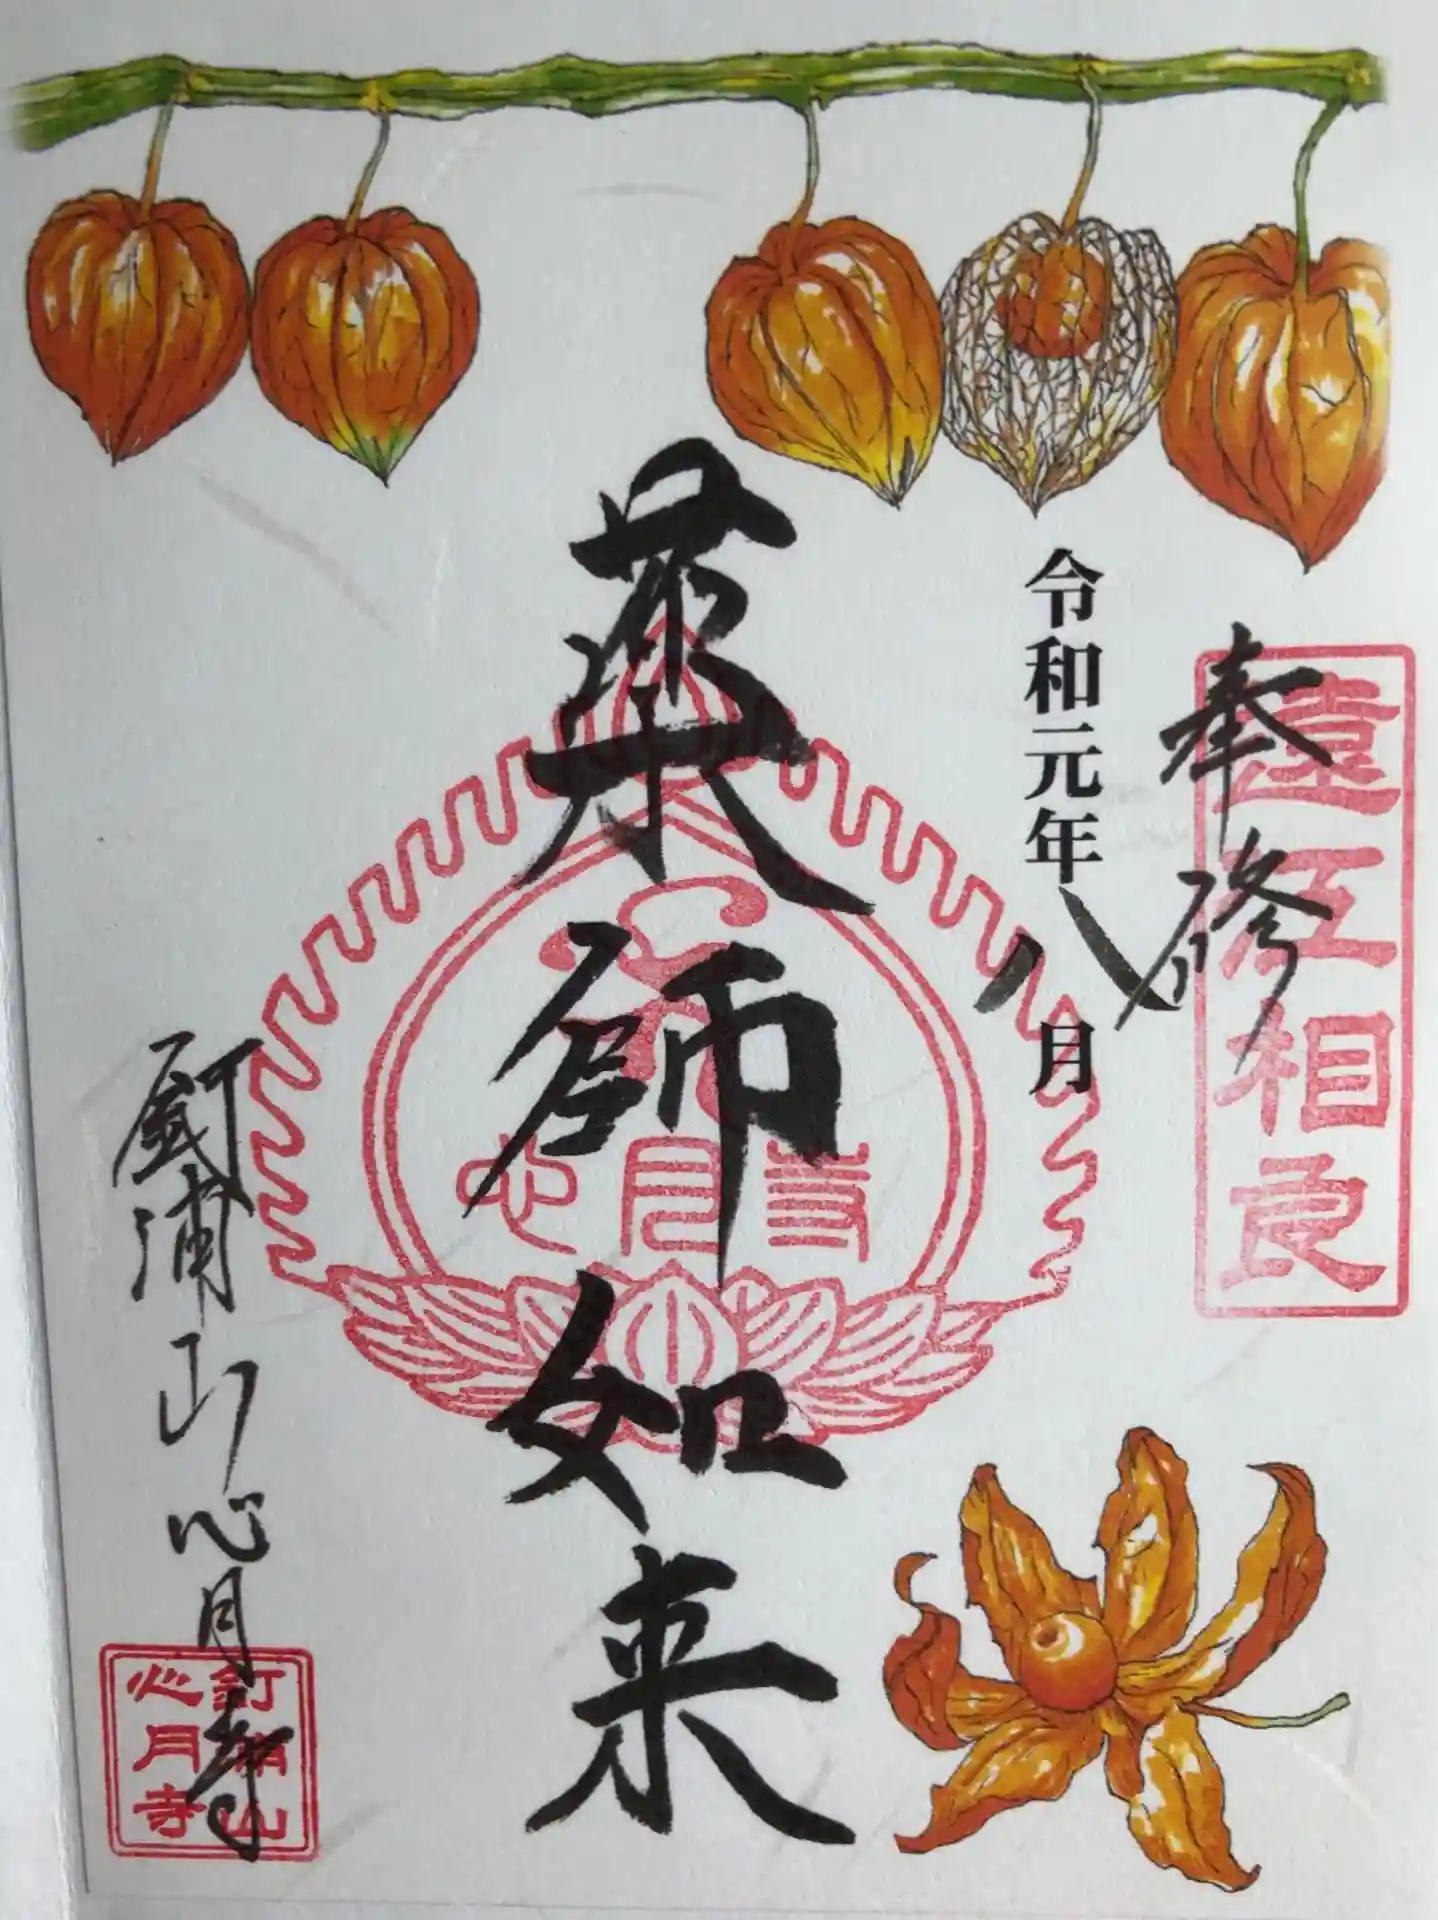 奉修
遠江相良
令和元年八月
薬師如来
心月寺
釘浦山心月寺
釘浦山
心月寺